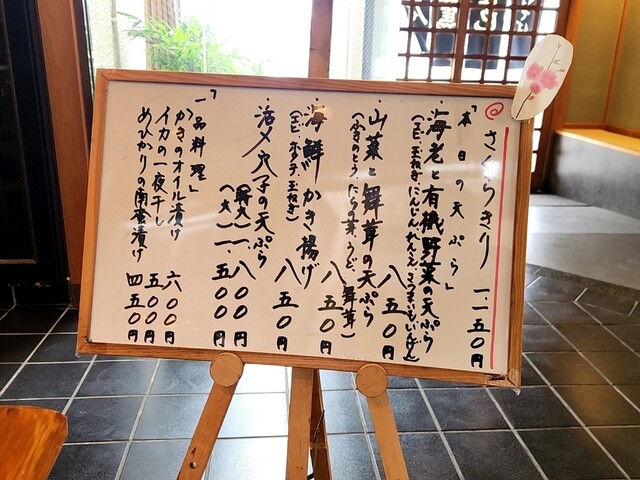 @さくらきり 一、一五〇円
「本日の天ぷら」
・海老と有機野菜の天ぷら 八五〇円
(エビ、玉ねぎ、にんじん、れんこん、さつまいも、いんげん)
・山菜と舞茸の天ぷら 八五〇円
(ふきのとう、たらの芽、うど、舞茸)
・海鮮かき揚げ 八五〇円
(エビ、ホタテ、玉ねぎ)
・活〆穴子の天ぷら
(特大)一、八〇〇円
(大)一、五〇〇円
「一品料理」
かきのオイル漬け 六〇〇円
イカの一夜干し 五〇〇円
めひかりの南蛮漬け 四五〇円